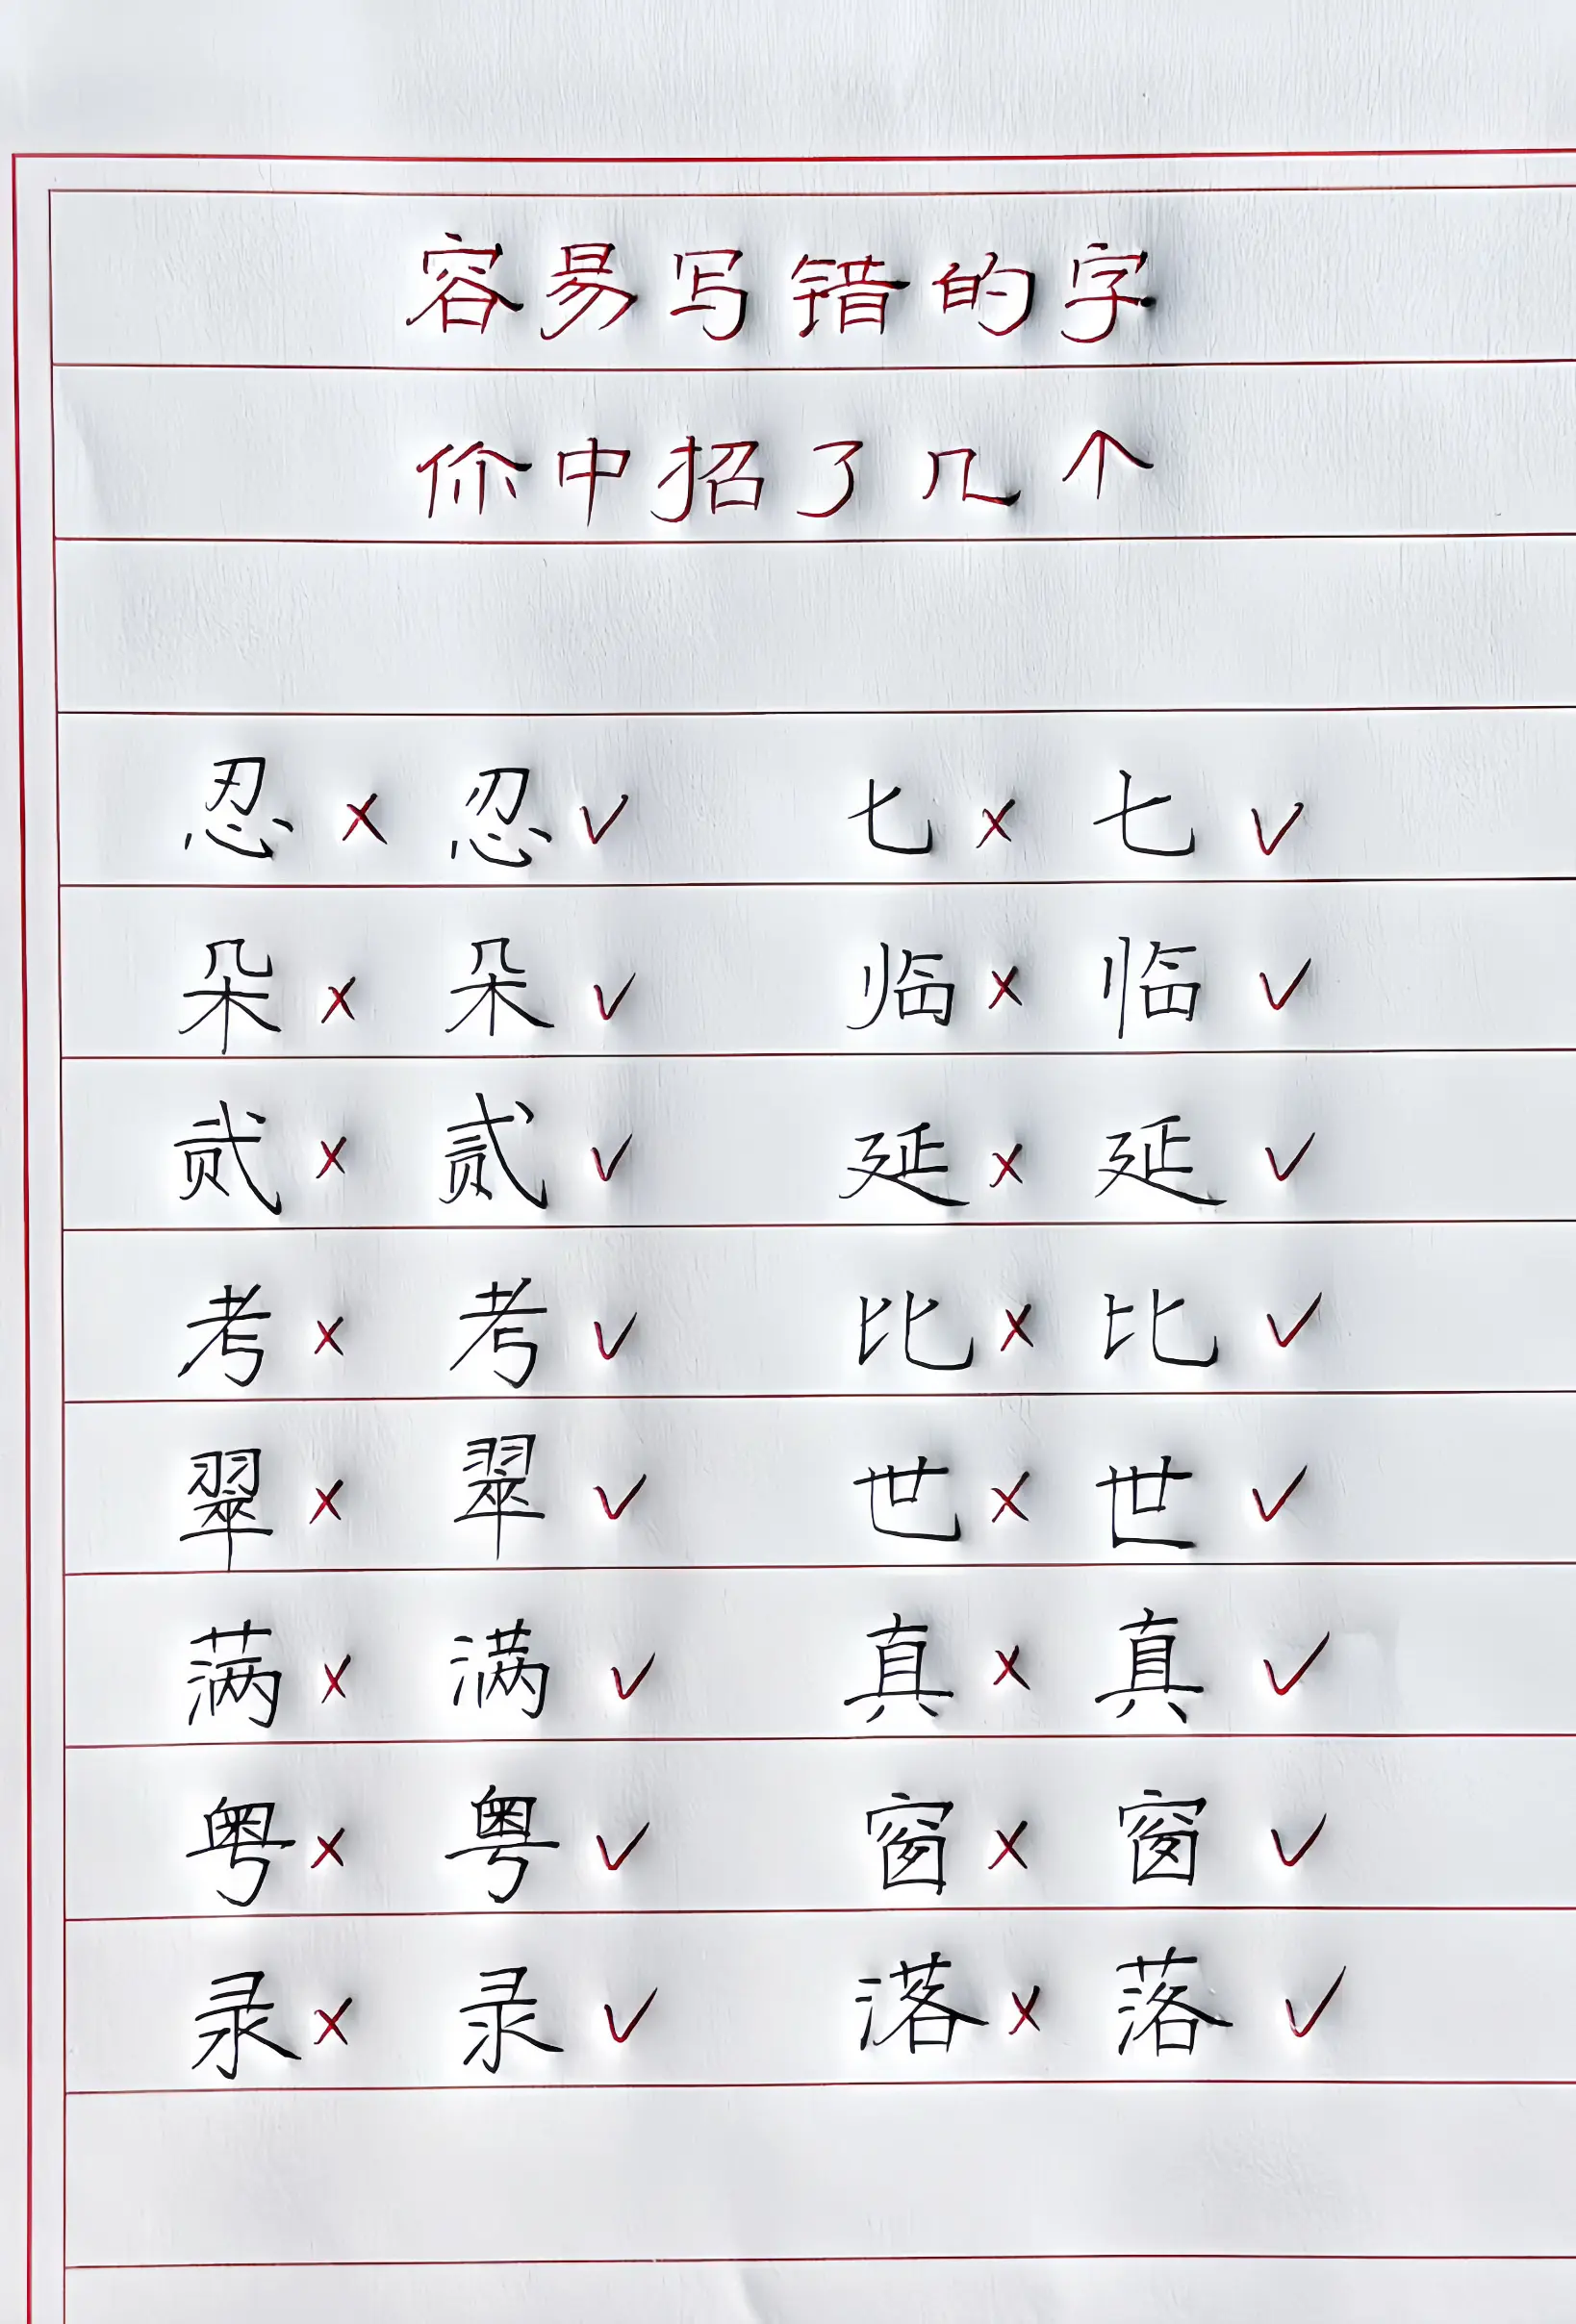 容易写错的字
你中招了几个
忍 × 忍 ✓ 七 × 七 ✓
朵 × 朵 ✓ 临 × 临 ✓
贰 × 贰 ✓ 延 × 延 ✓
考 × 考 ✓ 比 × 比 ✓
翠 × 翠 ✓ 世 × 世 ✓
满 × 满 ✓ 真 × 真 ✓
粤 × 粤 ✓ 窗 × 窗 ✓
录 × 录 ✓ 落 × 落 ✓